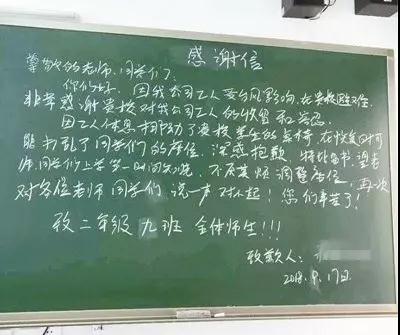 感谢信
尊敬的老师、同学们:
你们好,因我公司工人受台风影响,在贵校避风住,
非常感谢贵校对我公司工人的收留和容忍
因工人休息挪动了贵校学生的桌椅,在恢复时可
能打乱了同学们的座位,深感抱歉,特此留书望老
师、同学们上学第一时间
不厌其烦调整座位,再一次
对各位老师同学们说一声对不起!您们辛苦了!
致二年级九班全体师生!!!
致歉人:
2018.9.17日